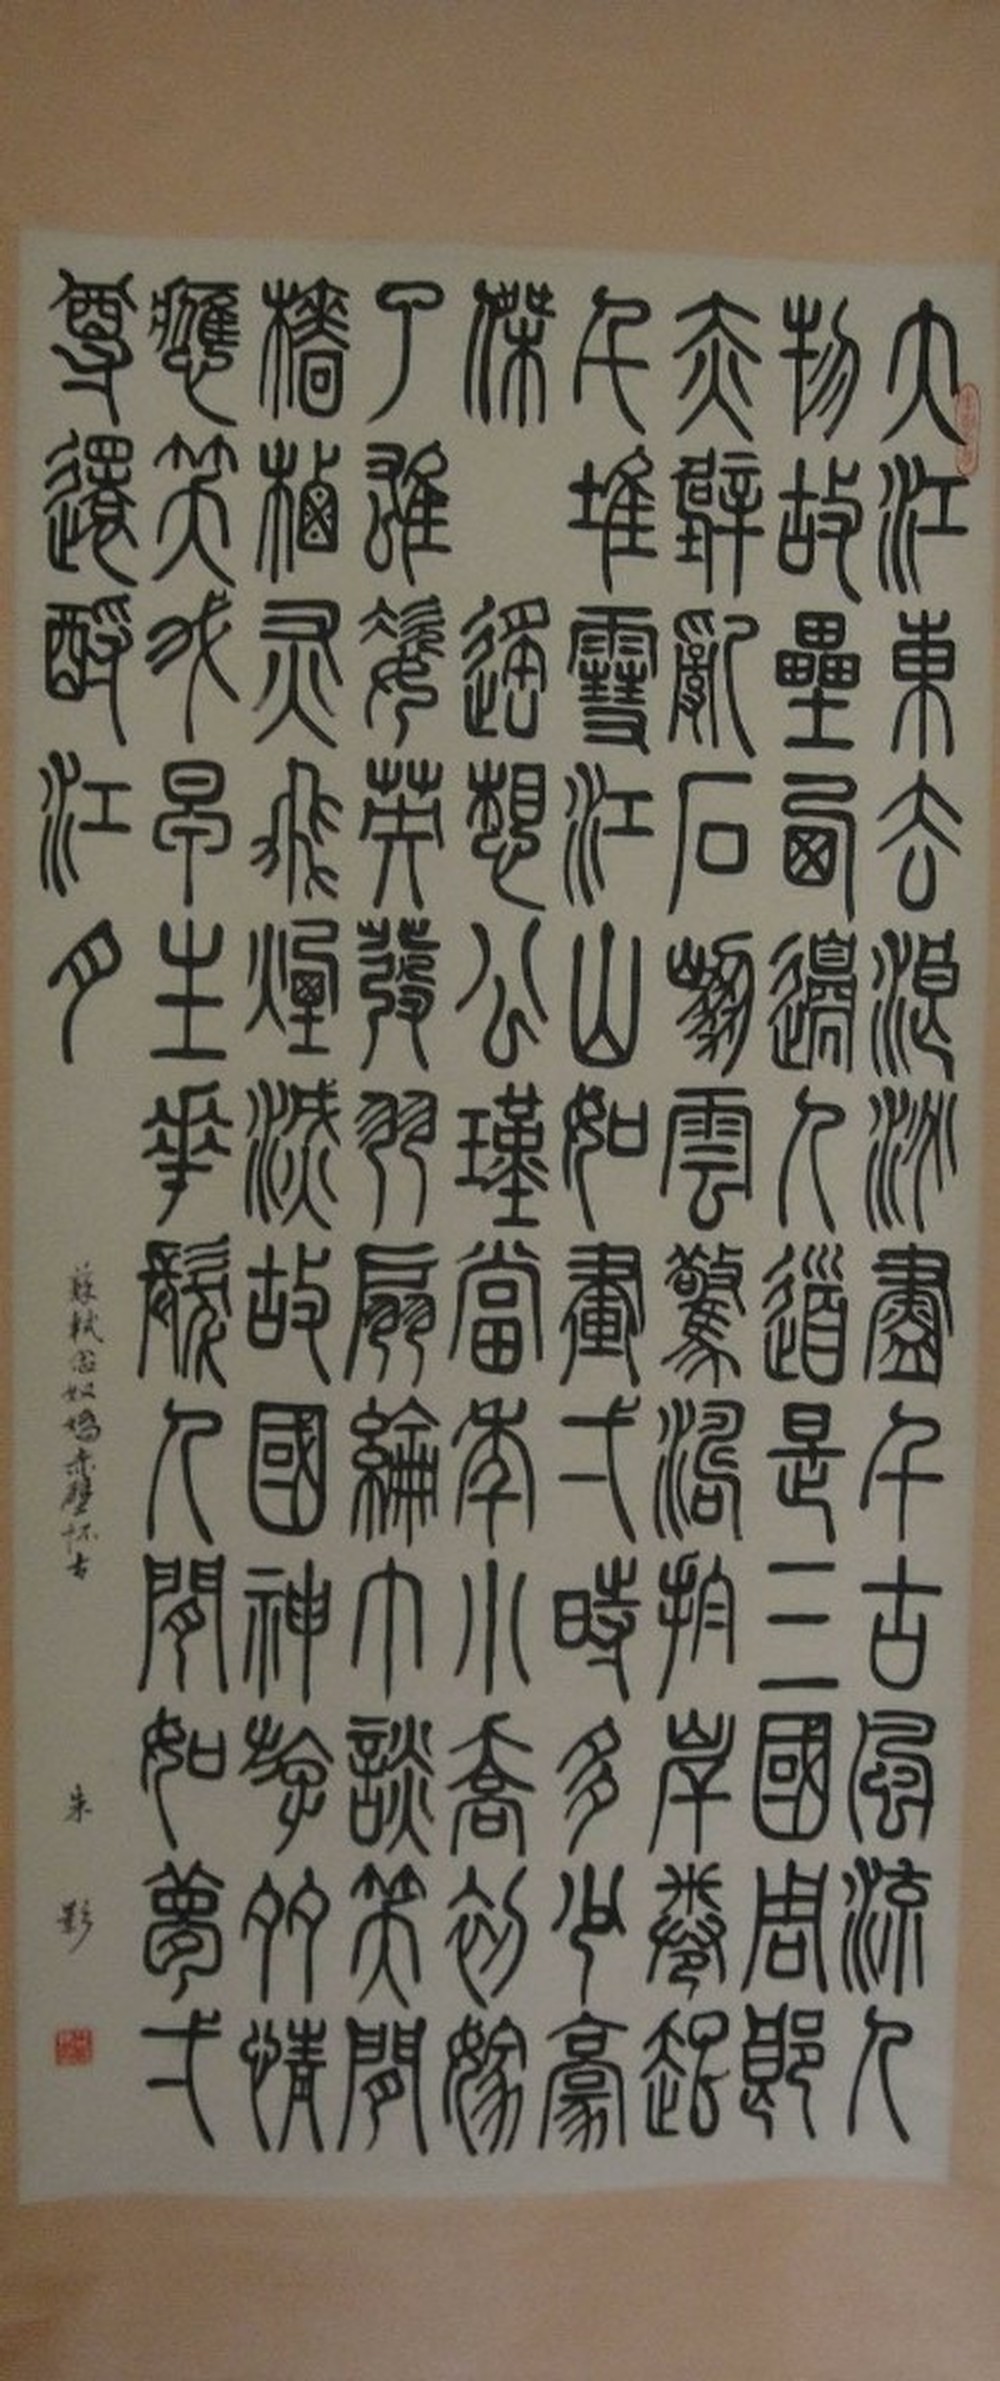 大江東去浪淘盡千古風流人
物故壘西邊人道是三國周郎
赤壁亂石崩雲驚濤拍岸卷起
千堆雪江山如畫弌時多少豪
傑 遙想公瑾當年小喬初嫁
了雄姿英發羽扇綸巾談笑間
檣櫓灰飛煙滅故國神游多情
應笑我早生華髮人間如夢弌
尊還酹江月
蘇軾念奴嬌赤壁怀古
朱影